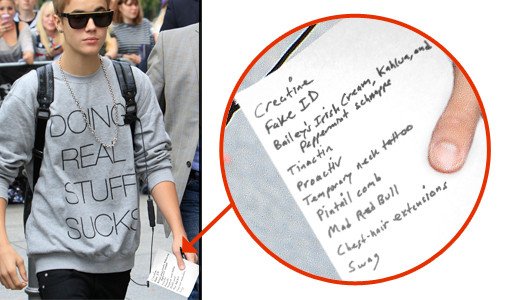 DOING
REAL
STUFF
SUCKS
Creatine
Fake ID
Bailey's Irish Cream, Kahlua, and
Peppermint schnapps
Tinactin
Proactiv
Temporary neck tattoo
Pintail comb
Mad Red Bull
Chest-hair extensions
Swag